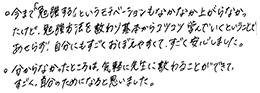 ○今まで「勉強する」というモチベーションもなかなか上がらなかっ
たけど、勉強方法を教わり基本からコツコツ学んでいくということで
あせらず、自分にもすごくおぼえやすくて、すごく安心しました。
○分からなかったところは、気軽に先生に教わることができて、
すごく、自分のためになると思いました。